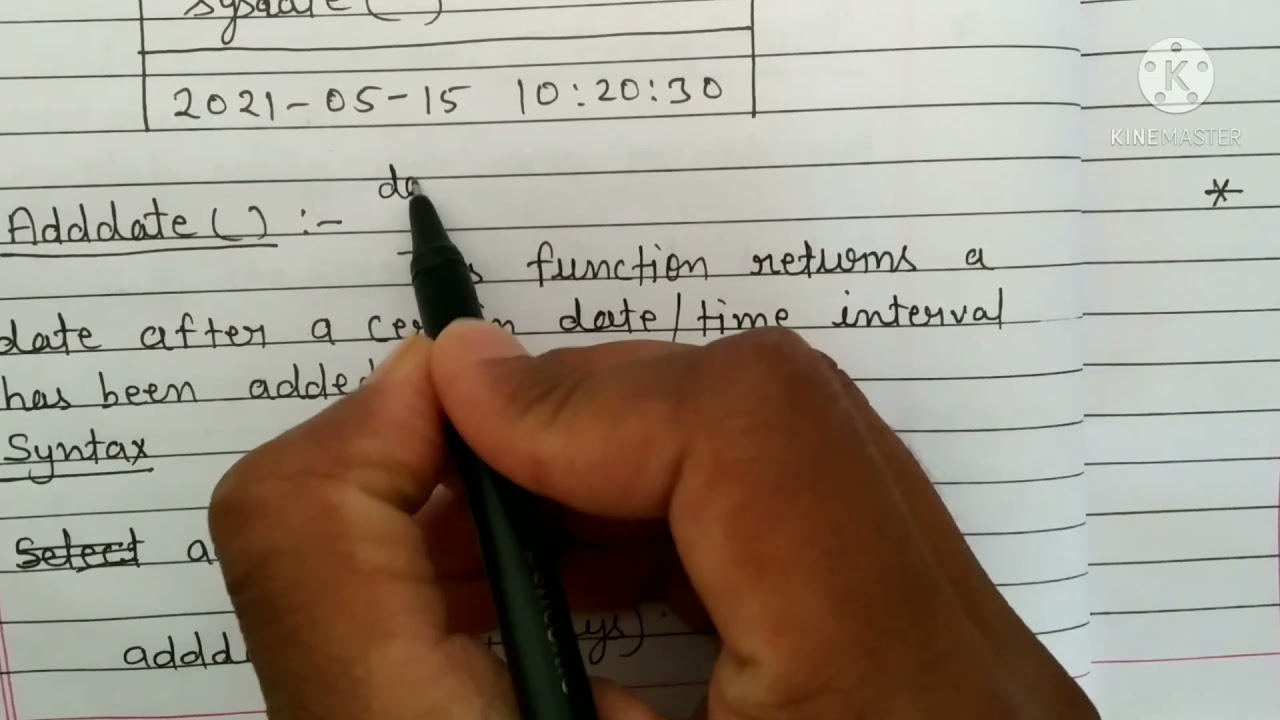 sysdate()
2021-05-15 10:20:30
K
KINEMASTER
da
Adddate() :-
function returns a
date after a date/time interval
has been added
Syntax
Select